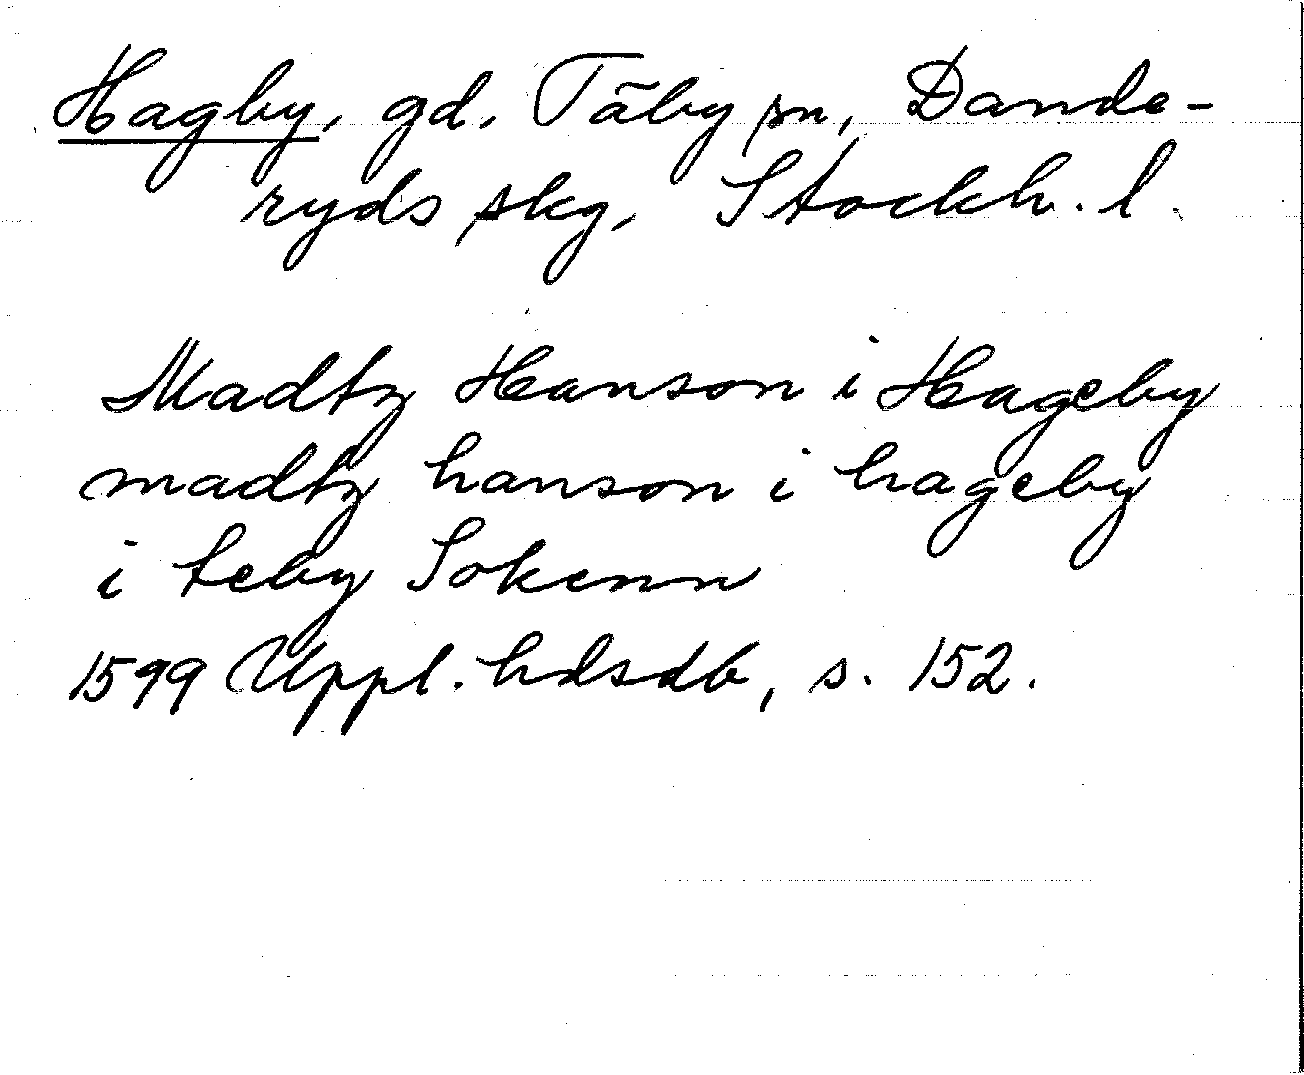 Hagby, gd, Täby sn, Dande-
ryds skg, Stockh. l.
Madtz Hanson i Hageby
madtz hanson i hageby
i teby Sokenn
1599 Uppl. hdsdb, s. 152.